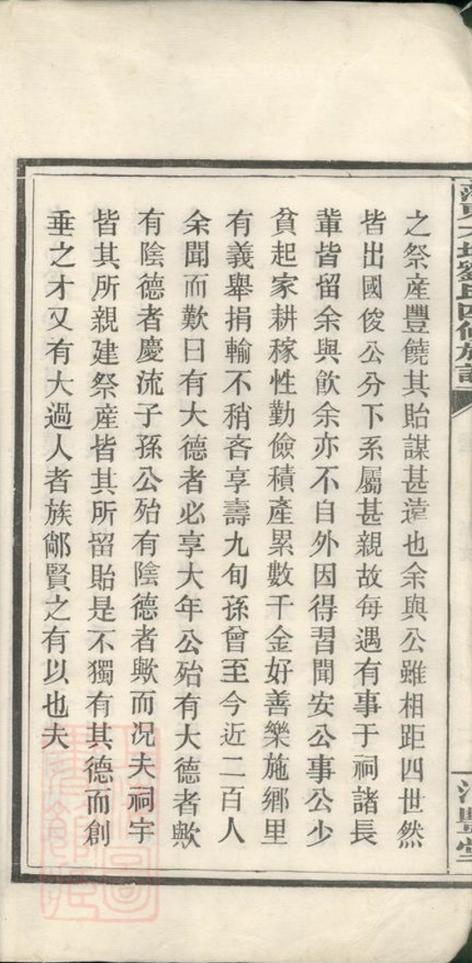 之祭產豐饒其貽謀甚遠也余與公雖相距四世然
皆出國俊公分下系屬甚親故每遇有事于祠諸長
輩皆留余與飲余亦不自外因得習聞安公事公少
貧起家耕稼性勤儉積產累數千金好善樂施鄉里
有義舉捐輸不稍吝享壽九旬孫曾至今近二百人
余聞而歎曰有大德者必享大年公殆有大德者歟
有陰德者慶流子孫公殆有陰德者歟而况夫祠宇
皆其所親建祭產皆其所留貽是不獨有其德而創
垂之才又有大過人者族鄰賢之有以也夫
劉氏四修族譜
豐堂